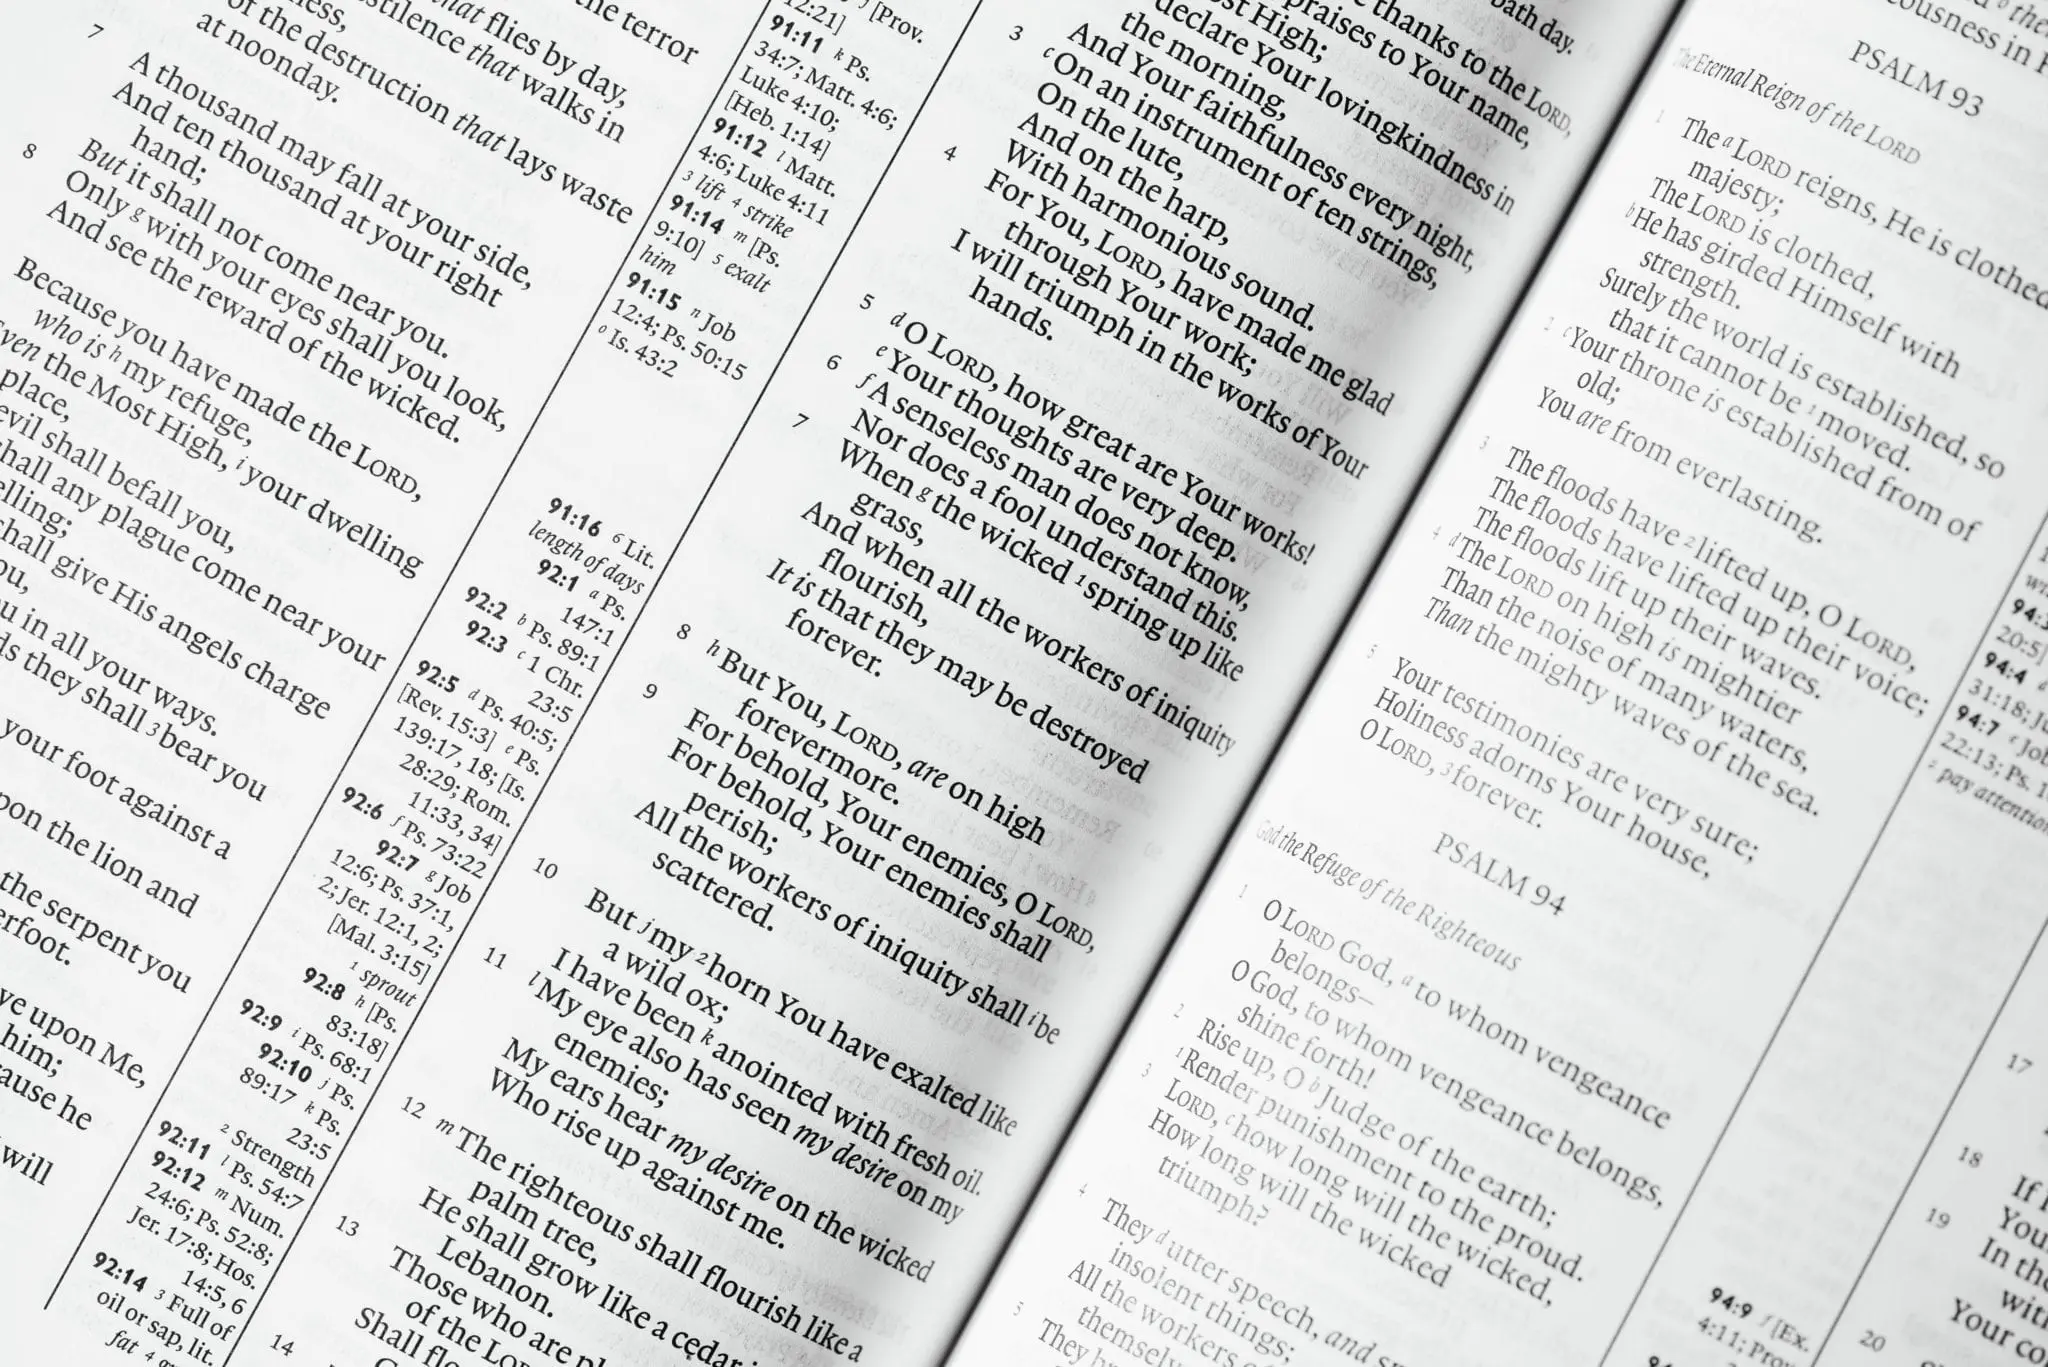 the terror
that flies by day,
stilence that walks in
of the destruction that lays waste
at noonday.
7 A thousand may fall at your side,
And ten thousand at your right
hand;
8 But it shall not come near you.
Only g with your eyes shall you look,
And see the reward of the wicked.
Because you have made the LORD,
who is h my refuge,
Even the Most High, i your dwelling
place,
evil shall befall you,
hall any plague come near your
elling;
hall give His angels charge
ou,
u in all your ways.
ds they shall 3 bear you
your foot against a
pon the lion and
the serpent you
erfoot.
ve upon Me,
him;
ause he
will
[Prov.
12:21]
91:11 k Ps.
34:7; Matt. 4:6;
Luke 4:10;
[Heb. 1:14]
91:12 l Matt.
4:6; Luke 4:11
3 lift 4 strike
91:14 m [Ps.
9:10] 5 exalt
him
91:15 n Job
12:4; Ps. 50:15
o Is. 43:2
91:16 6 Lit.
length of days
92:1 a Ps.
147:1
92:2 b Ps. 89:1
92:3 c 1 Chr.
23:5
92:5 d Ps. 40:5;
[Rev. 15:3] e Ps.
139:17, 18; [Is.
28:29; Rom.
11:33, 34]
92:6 f Ps. 73:22
92:7 g Job
12:6; Ps. 37:1,
2; Jer. 12:1, 2;
[Mal. 3:15]
1 sprout
92:8 h [Ps.
83:18]
92:9 i Ps. 68:1
92:10 j Ps.
89:17 k Ps.
23:5
2 Strength
92:11 l Ps. 54:7
92:12 m Num.
24:6; Ps. 52:8;
Jer. 17:8; Hos.
14:5, 6
92:14 3 Full of
oil or sap, lit.
fat 4
bath day.
thanks to the LORD,
praises to Your name,
ost High;
declare Your lovingkindness in
the morning,
And Your faithfulness every night,
3 c On an instrument of ten strings,
On the lute,
And on the harp,
With harmonious sound.
4 For You, LORD, have made me glad
through Your work;
I will triumph in the works of Your
hands.
5 d O LORD, how great are Your works!
e Your thoughts are very deep.
6 f A senseless man does not know,
Nor does a fool understand this.
7 When g the wicked 1 spring up like
grass,
And when all the workers of iniquity
flourish,
It is that they may be destroyed
forever.
8 h But You, LORD, are on high
forevermore.
9 For behold, Your enemies, O LORD,
For behold, Your enemies shall
perish;
All the workers of iniquity shall i be
scattered.
10 But j my 2 horn You have exalted like
a wild ox;
I have been k anointed with fresh oil.
11 l My eye also has seen my desire on my
enemies;
My ears hear my desire on the wicked
Who rise up against me.
12 m The righteous shall flourish like a
palm tree,
He shall grow like a cedar
Lebanon.
13 Those who are pl
of the LORD
Shall flo
14
b the
ousness in
PSALM 93
The Eternal Reign of the LORD
1 The a LORD reigns, He is clothed
majesty;
The LORD is clothed,
b He has girded Himself with
strength.
Surely the world is established, so
that it cannot be 1 moved.
2 c Your throne is established from of
old;
You are from everlasting.
3 The floods have 2 lifted up, O LORD,
The floods have lifted up their voice;
The floods lift up their waves.
4 d The LORD on high is mightier
Than the noise of many waters,
Than the mighty waves of the sea.
5 Your testimonies are very sure;
Holiness adorns Your house,
O LORD, 3 forever.
PSALM 94
God the Refuge of the Righteous
1 O LORD God, a to whom vengeance
belongs—
O God, to whom vengeance belongs,
shine forth!
2 Rise up, O b Judge of the earth;
1 Render punishment to the proud.
3 LORD, c how long will the wicked,
How long will the wicked
triumph?
4 They d utter speech, and
insolent things;
All the workers
5 They
20:5]
94:4
31:18;
94:7 e Job
22:13; Ps. 1
2 pay attention
94:9 f [Ex.
4:11;
17
18
If
You
19 In the
with
Your co
20